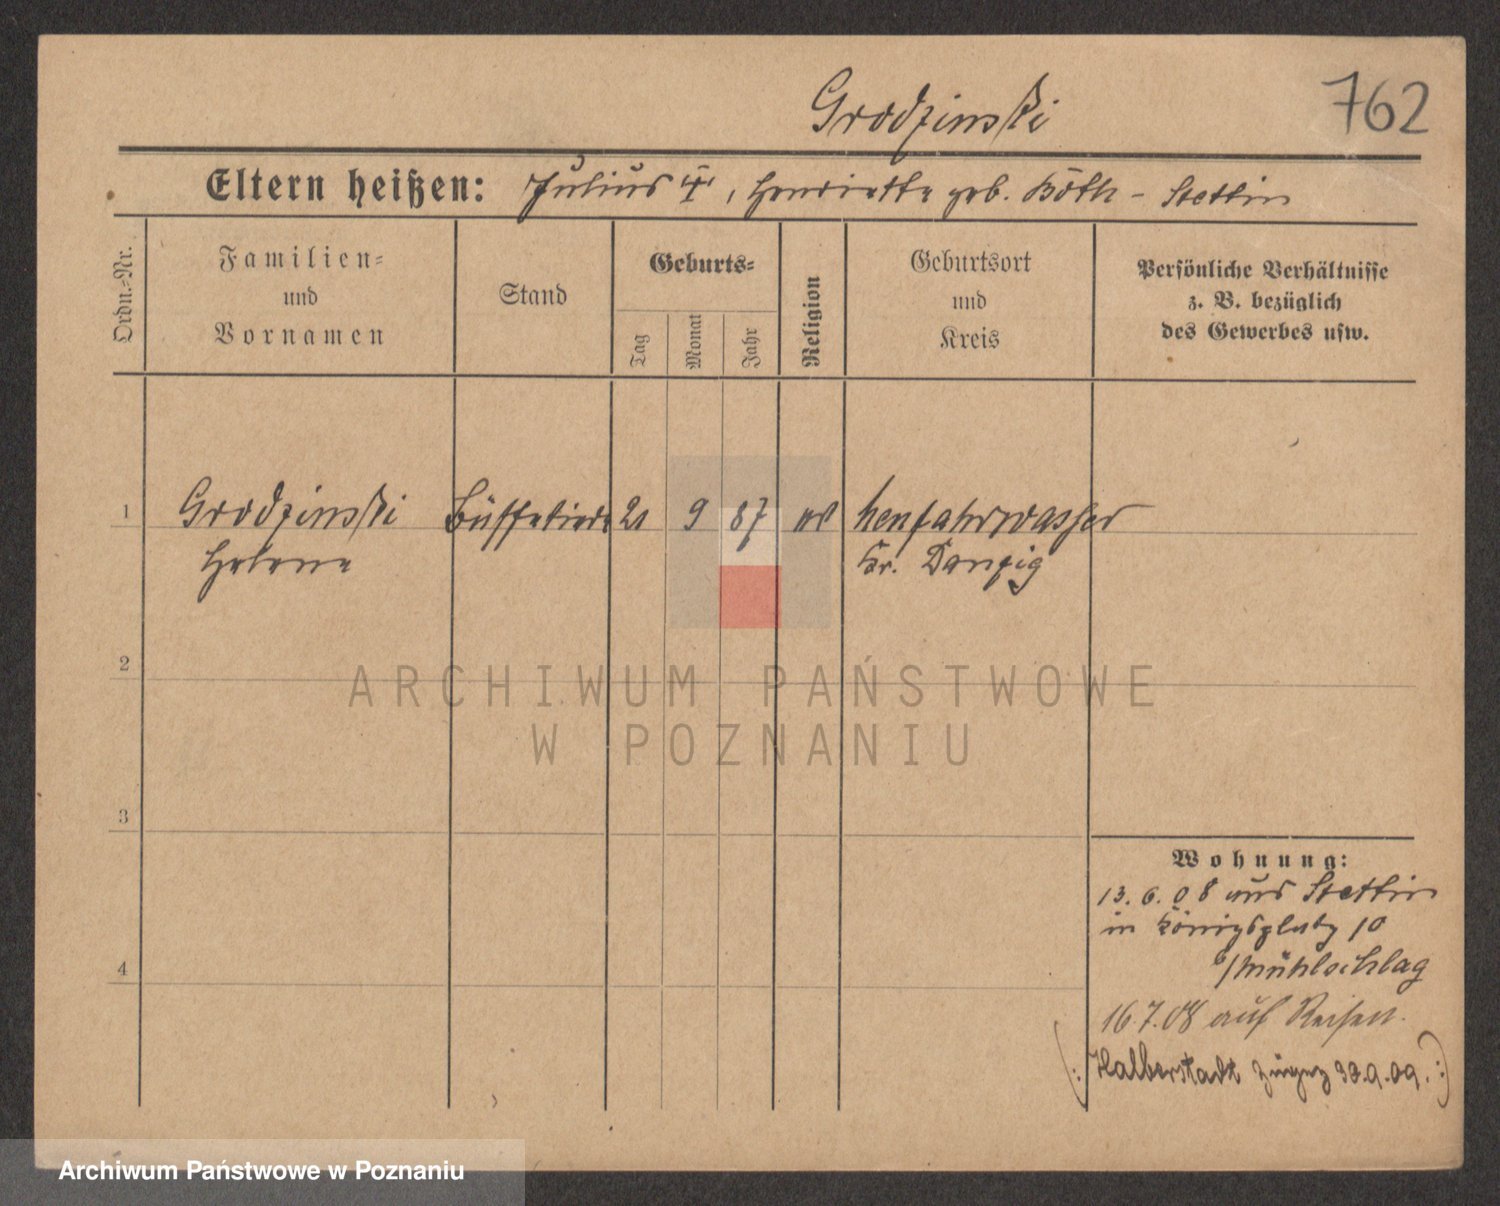 Grodzinski 762
Eltern heißen: Julius †, Henriette geb. Böth - Stettin
Ordn.-Nr.
Familien-
und
Vornamen
Stand
Geburts-
Tag
Monat
Jahr
Religion
Geburtsort
und
Kreis
Persönliche Verhältnisse
z. B. bezüglich
des Gewerbes usw.
1 Grodzinski Büffetiere 21 9 87 Neufahrwasser
Helene Kr. Danzig
2
3
4
ARCHIWUM PAŃSTWOWE
W POZNANIU
Wohnung:
13.6.08 aus Stettin
in Königsplatz 10
b/Mühlschlag
16.7.08 auf Reisen.
(: Halberstadt zugez 30.9.09. :)
Archiwum Państwowe w Poznaniu